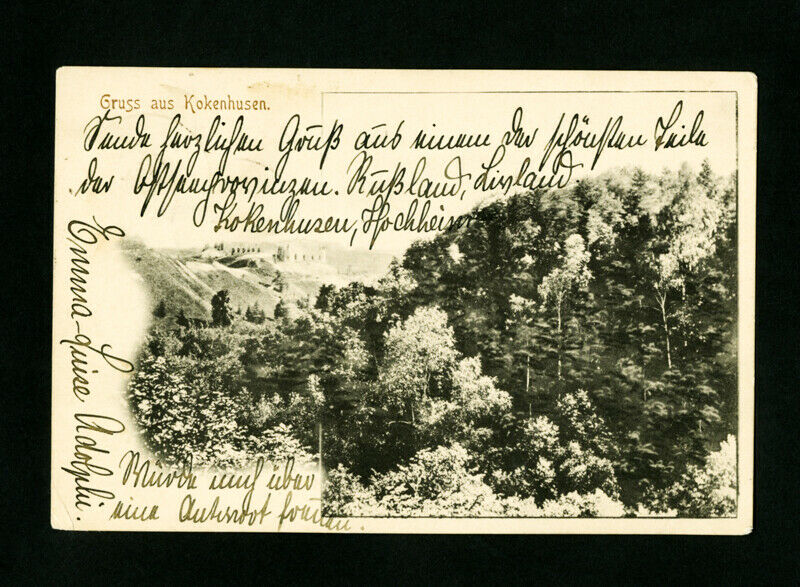 Gruss aus Kokenhusen.
Sende herzlichen Gruß aus einem der schönsten Teile
der Ostseeprovinzen. Rußland, Livland
Kokenhusen, Hochheim
Emma-Luise Adolphi.
Würde mich über
eine Antwort freuen.